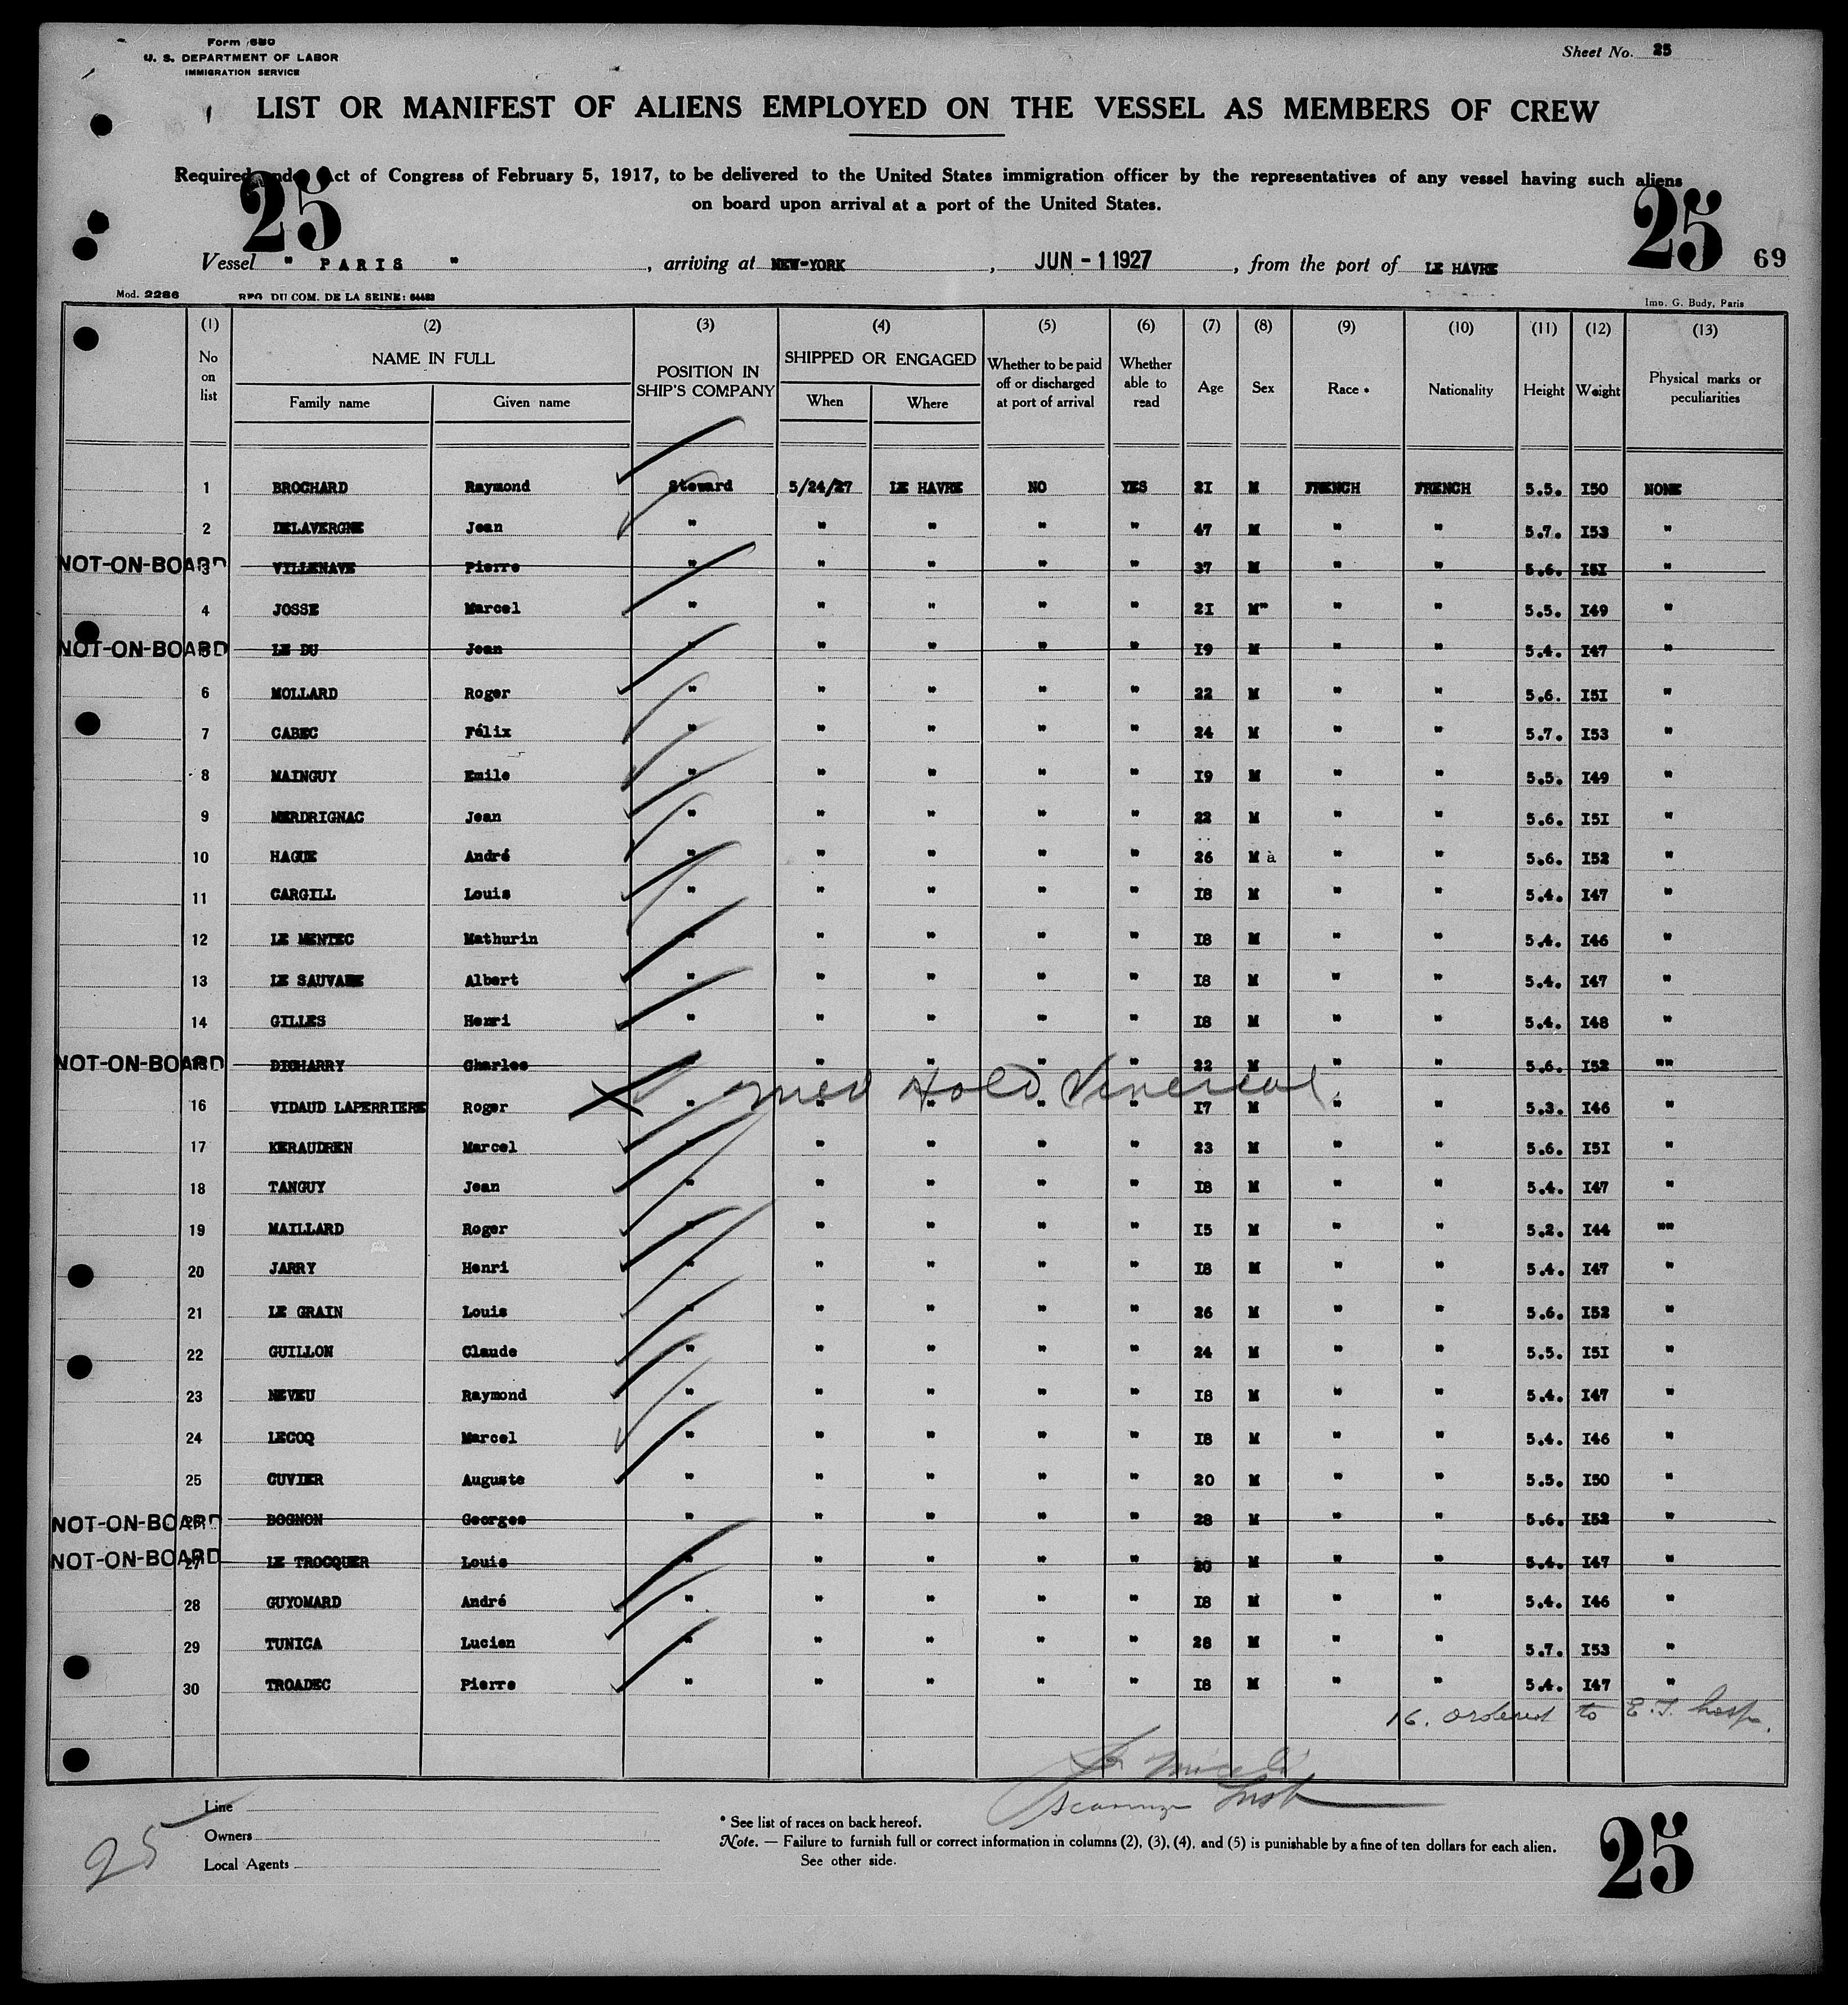 Form 680
U. S. DEPARTMENT OF LABOR
IMMIGRATION SERVICE
Sheet No. 25
LIST OR MANIFEST OF ALIENS EMPLOYED ON THE VESSEL AS MEMBERS OF CREW
Required under Act of Congress of February 5, 1917, to be delivered to the United States immigration officer by the representatives of any vessel having such aliens
on board upon arrival at a port of the United States.
25 25 69
Vessel " PARIS " , arriving at NEW-YORK , JUN - 1 1927 , from the port of LE HAVRE
Mod. 2286 REG. DU COM. DE LA SEINE: 64483 Imp. G. Budy, Paris
(1) (2) (3) (4) (5) (6) (7) (8) (9) (10) (11) (12) (13)
No on list NAME IN FULL Family name Given name POSITION IN SHIP'S COMPANY SHIPPED OR ENGAGED When Where Whether to be paid off or discharged at port of arrival Whether able to read Age Sex Race * Nationality Height Weight Physical marks or peculiarities
1 BROCHARD Raymond Steward 5/24/27 LE HAVRE NO YES 21 M FRENCH FRENCH 5.5. I50 NONE
2 DELAVERGNE Jean " " " " " 47 M " " 5.7. I53 "
NOT-ON-BOARD 3 VILLENAVE Pierre " " " " " 37 M " " 5.6. I5I "
4 JOSSE Marcel " " " " " 2I M" " " 5.5. I49 "
NOT-ON-BOARD 5 LE DU Jean " " " " " I9 M " " 5.4. I47 "
6 MOLLARD Roger " " " " " 22 M " " 5.6. I5I "
7 CABEC Félix " " " " " 24 M " " 5.7. I53 "
8 MAINGUY Emile " " " " " I9 M " " 5.5. I49 "
9 MERDRIGNAC Jean " " " " " 22 M " " 5.6. I5I "
10 HAGUE André " " " " " 26 M à " " 5.6. I52 "
11 CARGILL Louis " " " " " I8 M " " 5.4. I47 "
12 LE MENTEC Mathurin " " " " " I8 M " " 5.4. I46 "
13 LE Albert " " " " " I8 M " " 5.4. I47 "
14 GILLES Henri " " " " " I8 M " " 5.4. I48 "
NOT-ON-BOARD 15 DIGHARRY Charles " " " " " 22 M " " 5.6. I52 ""
Med Hold Venereal
16 VIDAUD LAPERRIERE Roger " " " " " I7 M " " 5.3. I46 "
17 KERAUDREN Marcel " " " " " 23 M " " 5.6. I5I "
18 TANGUY Jean " " " " " I8 M " " 5.4. I47 "
19 MAILLARD Roger " " " " " I5 M " " 5.2. I44 ""
20 JARRY Henri " " " " " I8 M " " 5.4. I47 "
21 LE GRAIN Louis " " " " " 26 M " " 5.6. I52 "
22 GUILLON Claude " " " " " 24 M " " 5.5. I5I "
23 NEVEU Raymond " " " " " I8 M " " 5.4. I47 "
24 LECOQ Marcel " " " " " I8 M " " 5.4. I46 "
25 CUVIER Auguste " " " " " 20 M " " 5.5. I50 "
NOT-ON-BOARD 26 BOGNON Georges " " " " " 28 M " " 5.6. I52 "
NOT-ON-BOARD 27 LE TROCQUER Louis " " " " " 20 M " " 5.4. I47 "
28 GUYOMARD André " " " " " I8 M " " 5.4. I46 "
29 TUNICA Lucien " " " " " 28 M " " 5.7. I53 "
30 TROADEC Pierre " " " " " I8 M " " 5.4. I47 "
16. ordered to E.I. hosp.
Insp
Line
Owners
Local Agents
25
* See list of races on back hereof.
Note. — Failure to furnish full or correct information in columns (2), (3), (4), and (5) is punishable by a fine of ten dollars for each alien.
See other side.
25